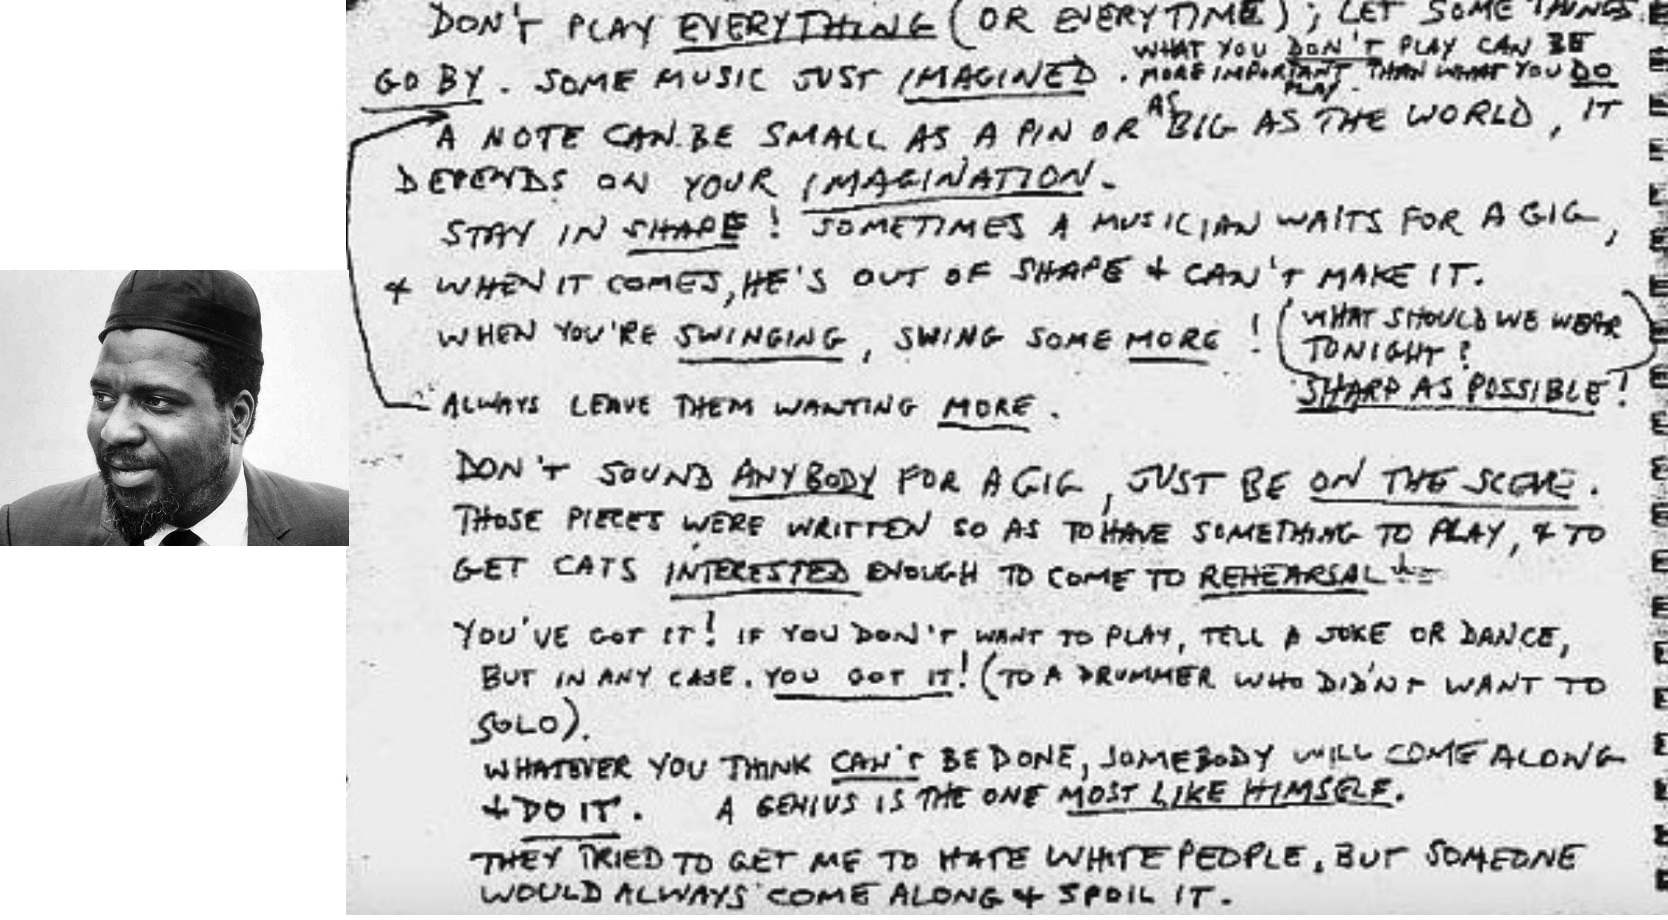 DON'T PLAY EVERYTHING (OR EVERYTIME); LET SOME THINGS
GO BY. SOME MUSIC JUST IMAGINED.
WHAT YOU DON'T PLAY CAN BE
MORE IMPORTANT THAN WHAT YOU DO
PLAY.
A NOTE CAN BE SMALL AS A PIN OR AS BIG AS THE WORLD, IT
DEPENDS ON YOUR IMAGINATION.
STAY IN SHAPE! SOMETIMES A MUSICIAN WAITS FOR A GIG,
& WHEN IT COMES, HE'S OUT OF SHAPE & CAN'T MAKE IT.
WHEN YOU'RE SWINGING, SWING SOME MORE!
(WHAT SHOULD WE WEAR
TONIGHT?
SHARP AS POSSIBLE!)
ALWAYS LEAVE THEM WANTING MORE.
DON'T SOUND ANYBODY FOR A GIG, JUST BE ON THE SCENE.
THOSE PIECES WERE WRITTEN SO AS TO HAVE SOMETHING TO PLAY, & TO
GET CATS INTERESTED ENOUGH TO COME TO REHEARSAL
YOU'VE GOT IT! IF YOU DON'T WANT TO PLAY, TELL A JOKE OR DANCE,
BUT IN ANY CASE. YOU GOT IT! (TO A DRUMMER WHO DIDN'T WANT TO
SOLO).
WHATEVER YOU THINK CAN'T BE DONE, SOMEBODY WILL COME ALONG
& DO IT. A GENIUS IS THE ONE MOST LIKE HIMSELF.
THEY TRIED TO GET ME TO HATE WHITE PEOPLE, BUT SOMEONE
WOULD ALWAYS COME ALONG & SPOIL IT.